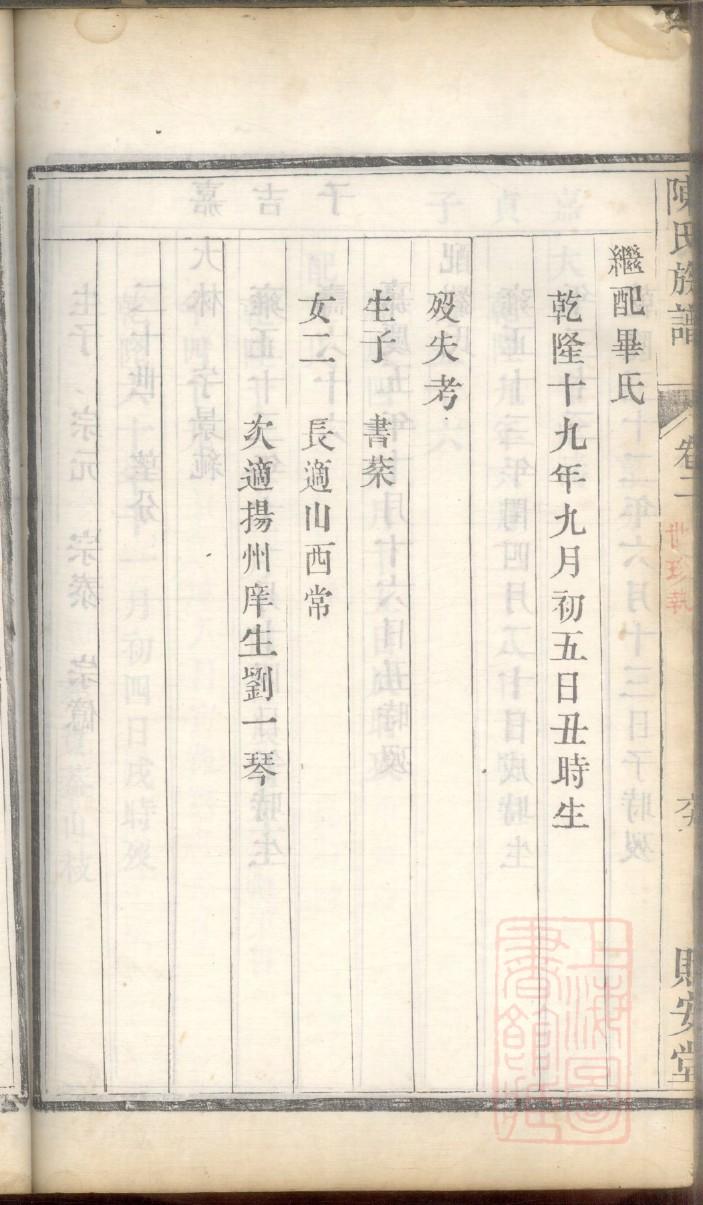 陳氏族譜 卷二 世珍葬 六 貽安堂
繼配畢氏
乾隆十九年九月初五日丑時生
歿失考
生子 書棻
女二 長適山西常
次適揚州庠生劉一琴
上海圖書館藏